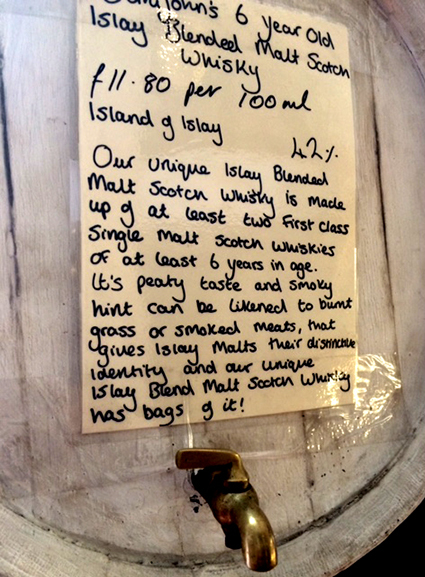 John's 6 Year Old
Islay Blended Malt Scotch
Whisky
£11.80 per 100ml
Island of Islay
42%
Our unique Islay Blended
Malt Scotch Whisky is made
up of at least two First Class
Single Malt Scotch Whiskies
of at least 6 years in age.
It's peaty taste and smoky
hint can be likened to burnt
grass or smoked meats, that
gives Islay Malts their distinctive
identity and our unique
Islay Blend Malt Scotch Whisky
has bags of it!